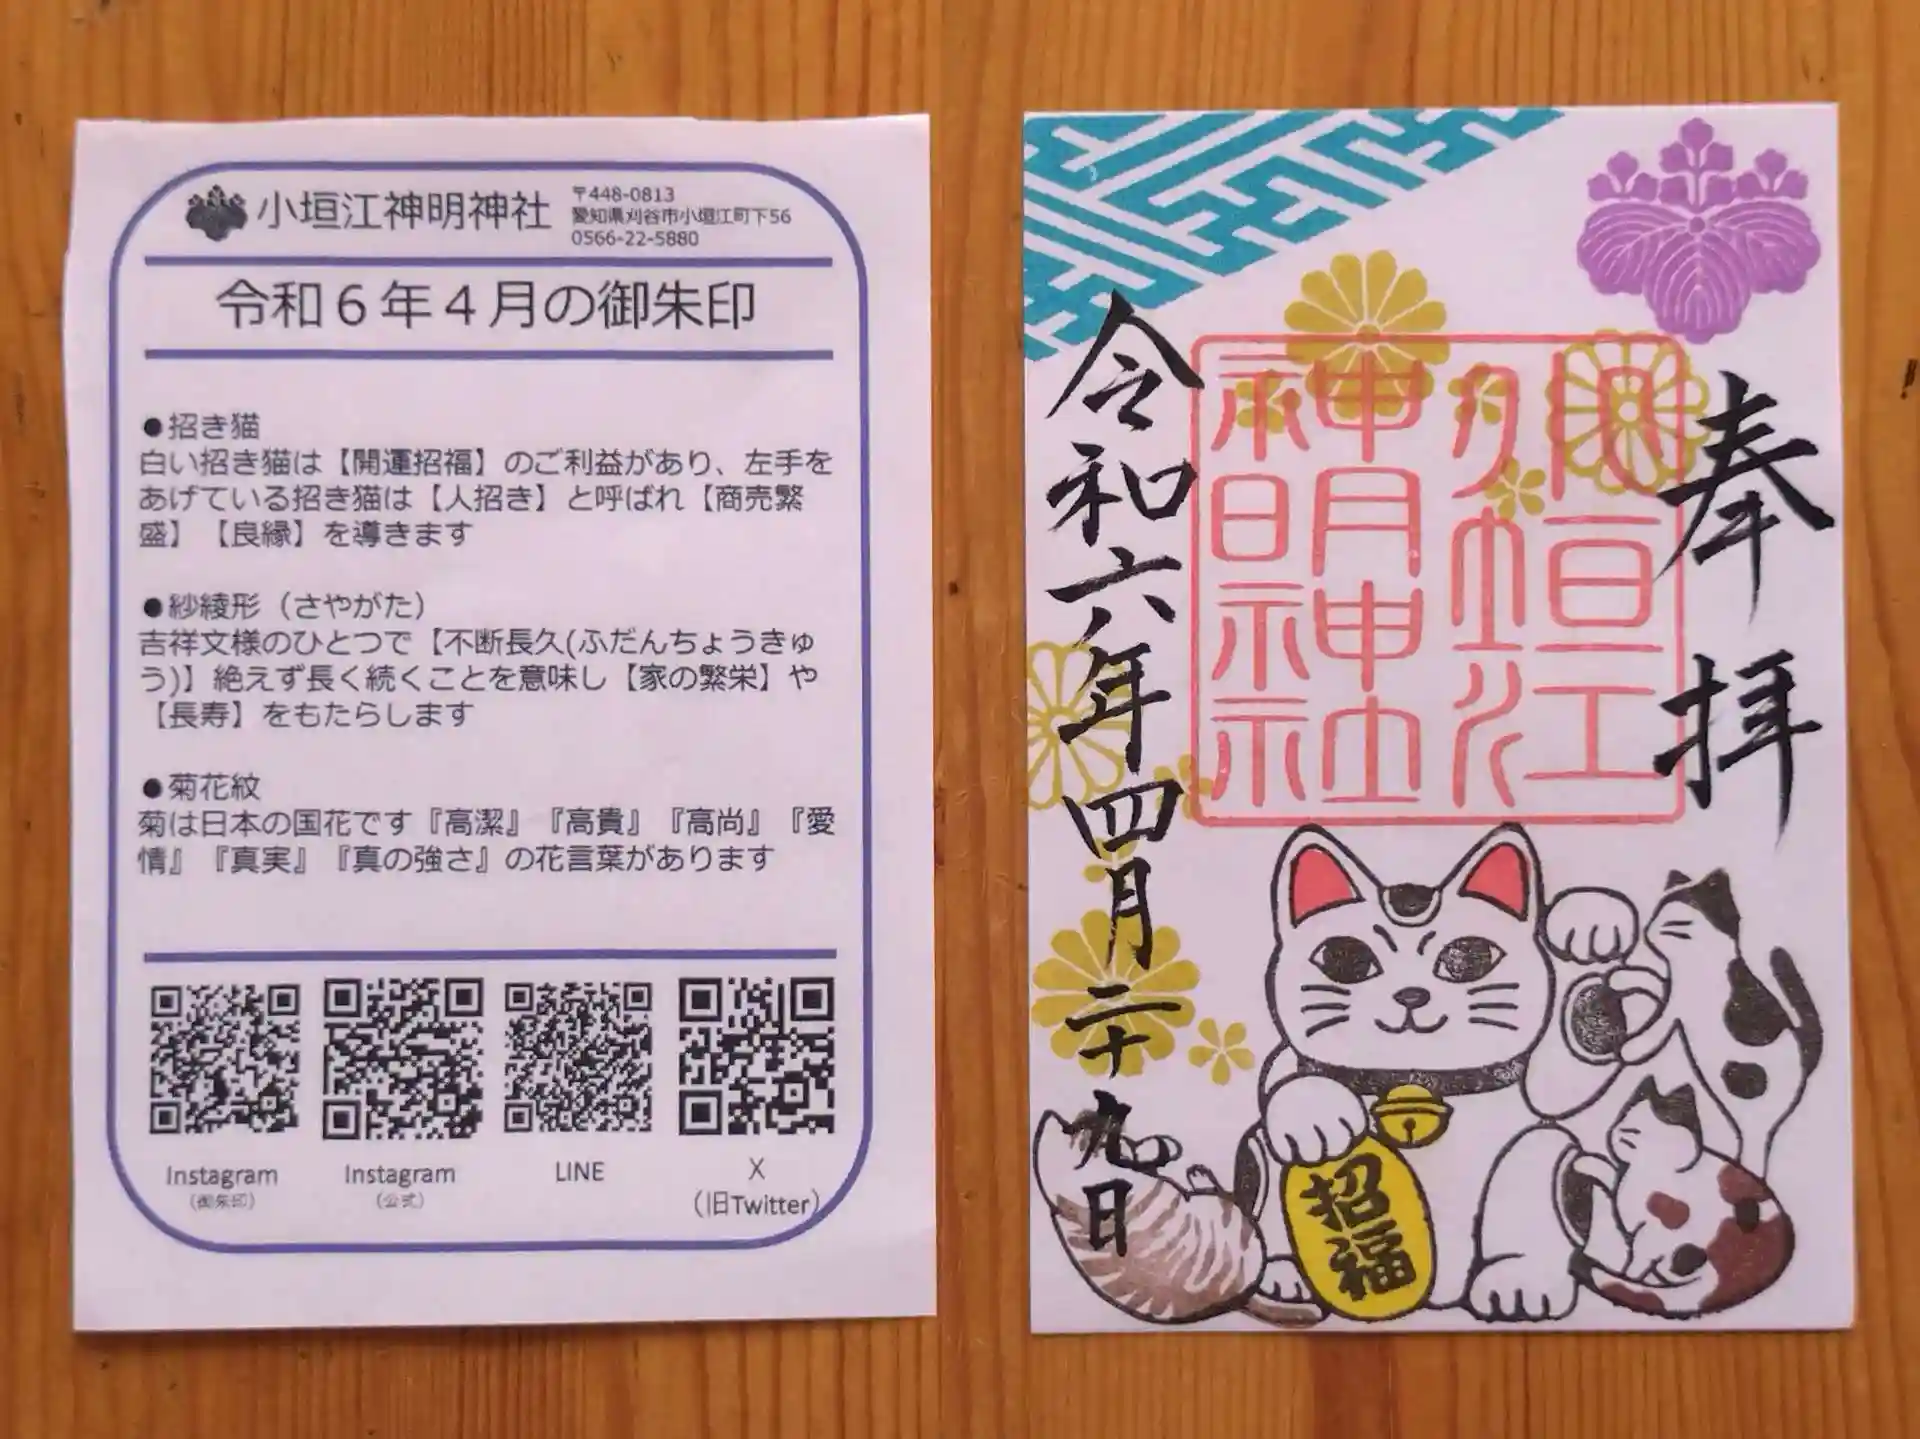 小垣江神明神社
〒448-0813
愛知県刈谷市小垣江町下56
0566-22-5880
令和6年4月の御朱印
●招き猫
白い招き猫は【開運招福】のご利益があり、左手を
あげている招き猫は【人招き】と呼ばれ【商売繁
盛】【良縁】を導きます
●紗綾形（さやがた）
吉祥文様のひとつで【不断長久(ふだんちょうきゅ
う)】絶えず長く続くことを意味し【家の繁栄】や
【長寿】をもたらします
●菊花紋
菊は日本の国花です『高潔』『高貴』『高尚』『愛
情』『真実』『真の強さ』の花言葉があります
Instagram
（御朱印）
Instagram
（公式）
LINE
X
（旧Twitter）
奉拝
小垣江
神明神社
令和六年四月二十九日
招福